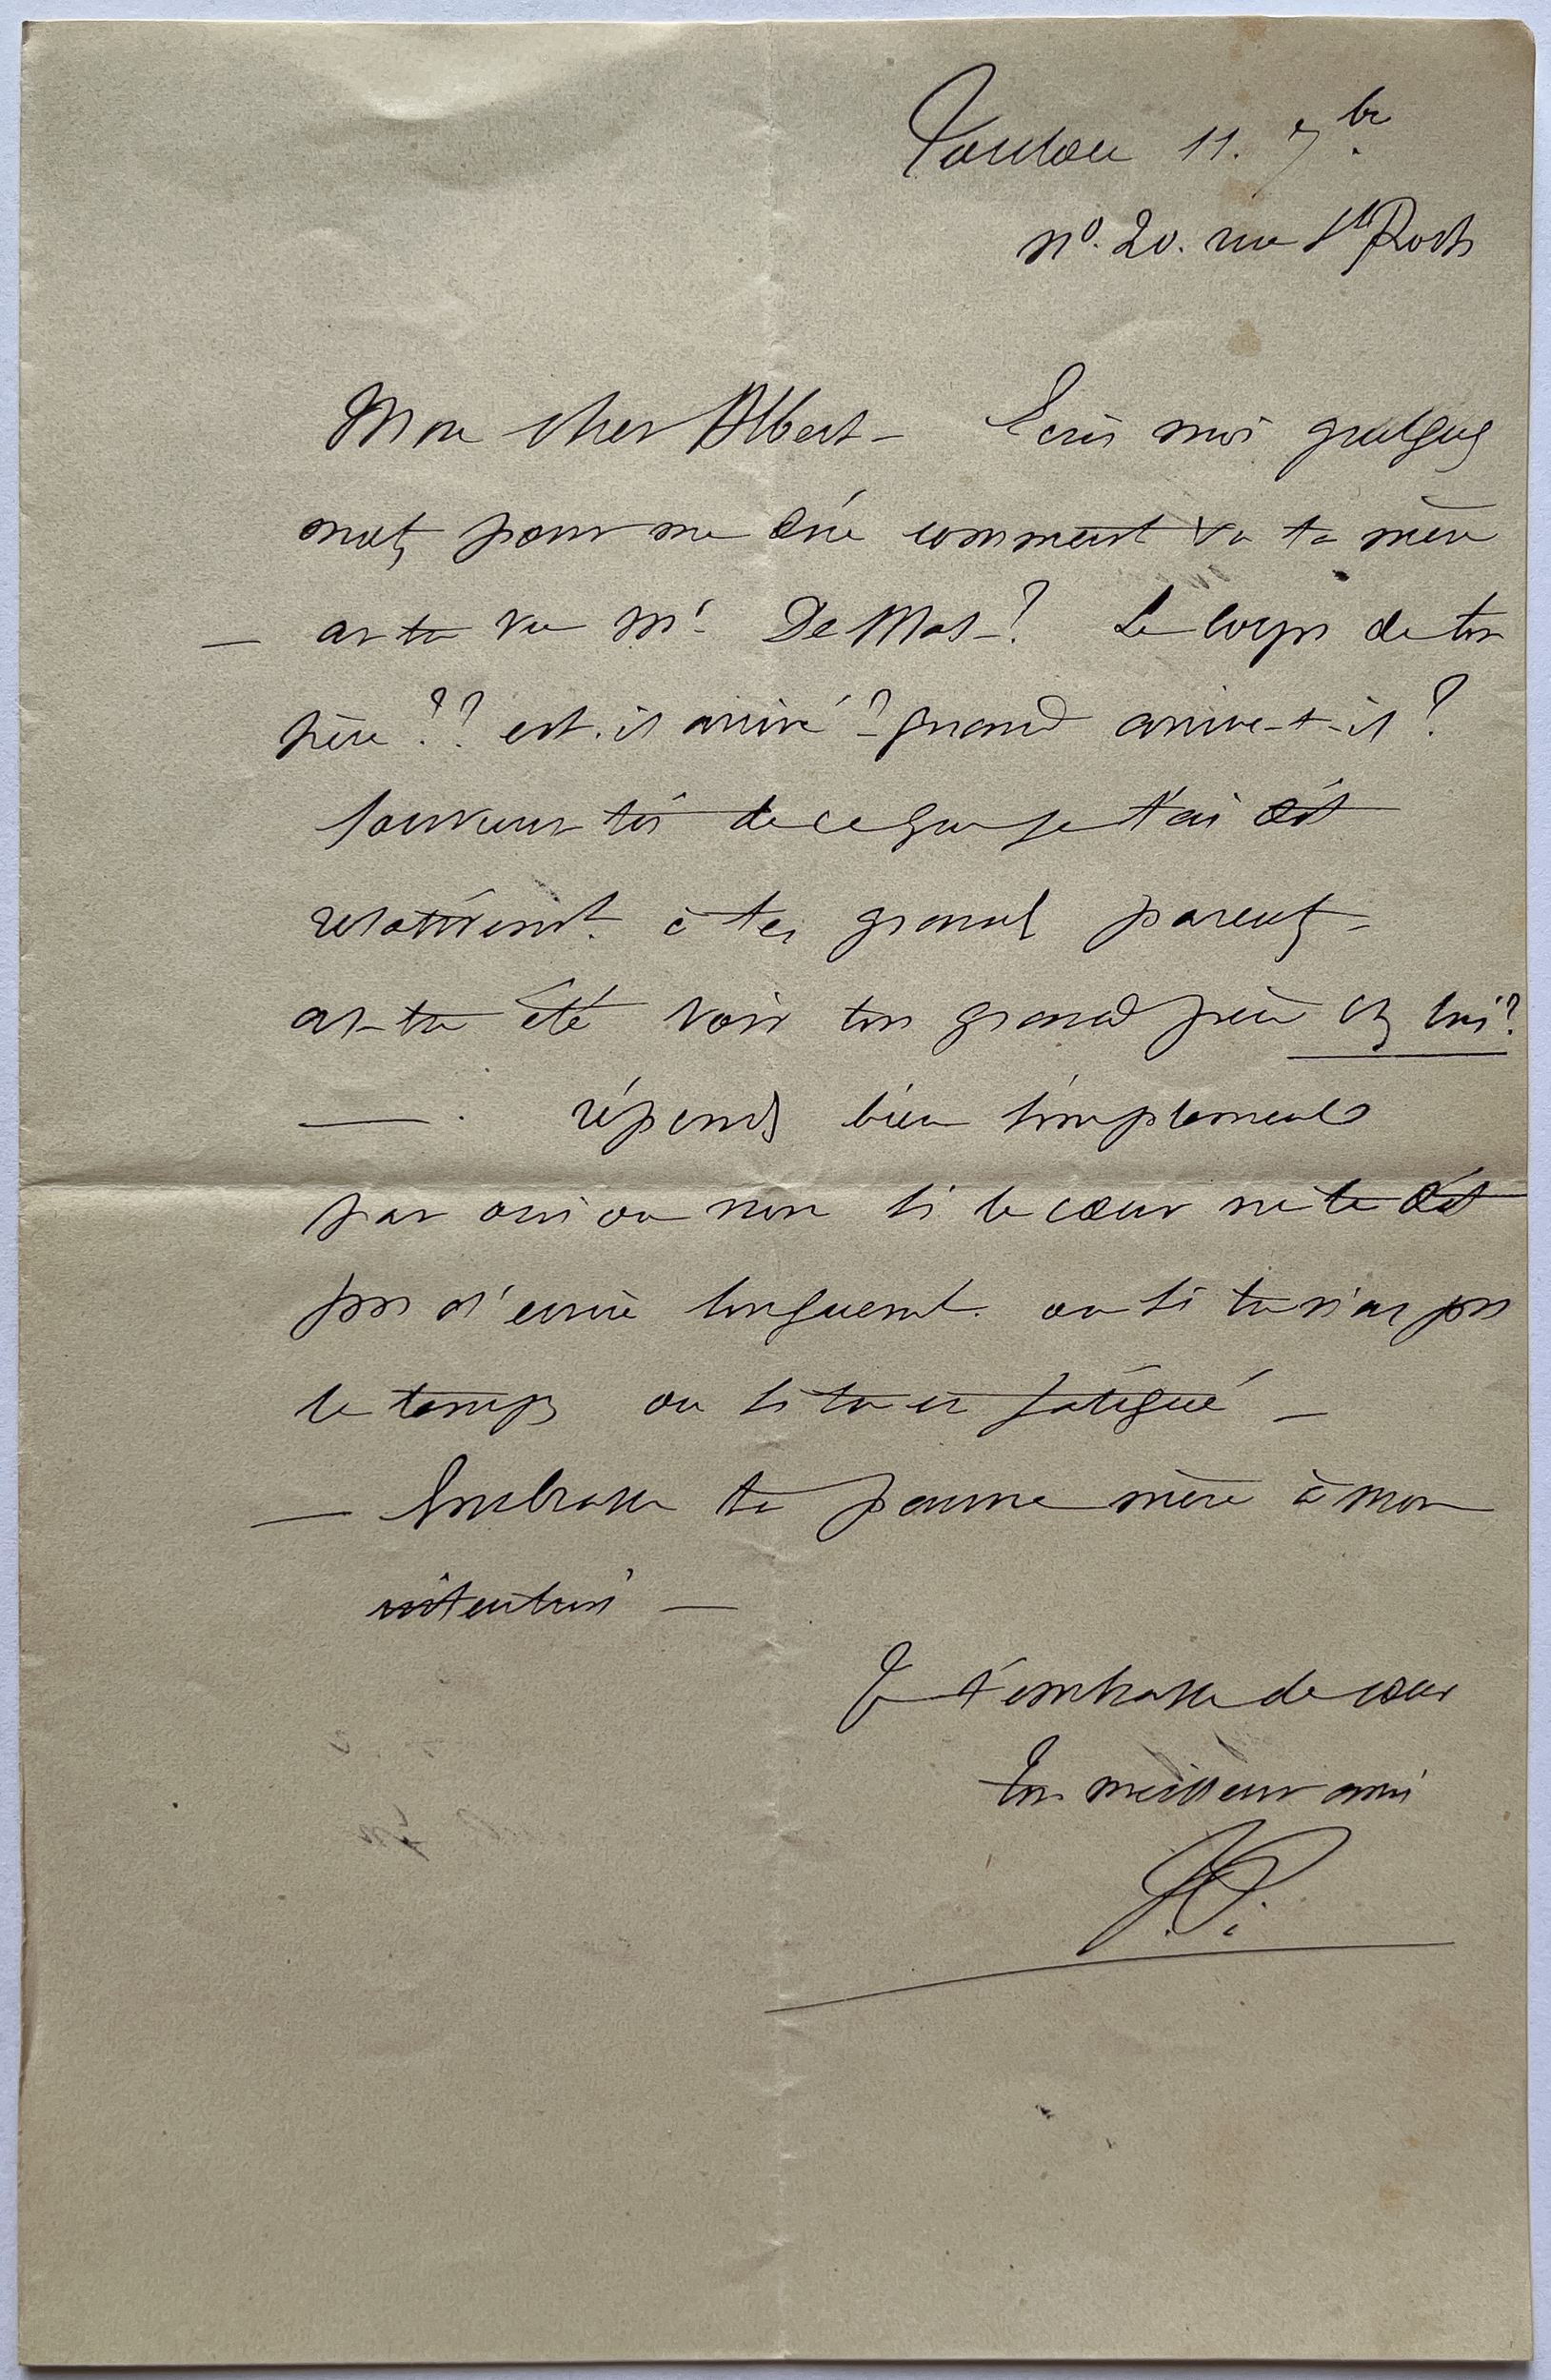 11. 7bre
nº. 20. rue St Roch
Mon cher Albert – Ecris moi quelques
mots pour me dire comment va ta mère
– as tu vu Mr. De Mas – ? Le corps de ton
père ?? est. il arrivé ? – quand arrive-t-il ?
Souviens toi de ce que je t'ai dit
relativemt. à tes grands parents –
as-tu été voir ton grand père chz lui ?
— . réponds bien simplement
par oui ou non si le cœur ne te dit
pas d'écrire longuemt. ou si tu n'as pas
le temps ou si tu es fatigué –
– Embrasse ta pauvre mère à mon
intention –
Je t'embrasse de cœur
Ton meilleur ami